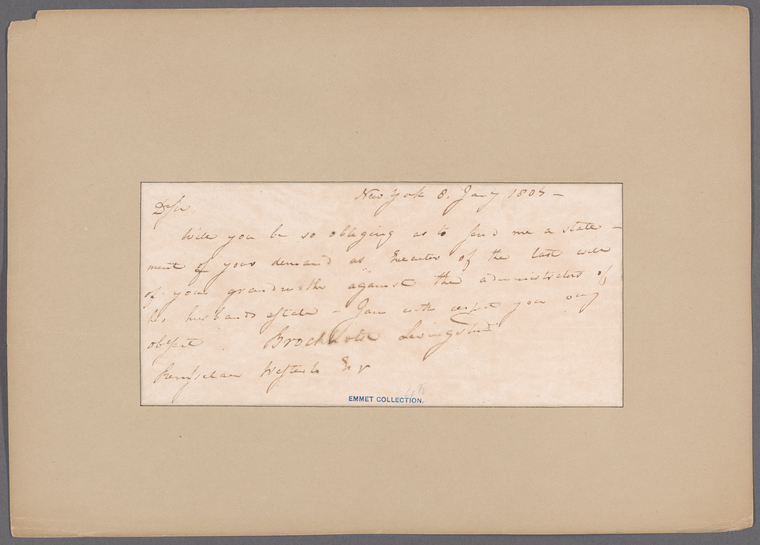 New York 8. Jany 180 –
Dr Sir
Will you be so obliging as to send me a state –
ment of your demand as Executor of the last will
of your grandmother against the administrators of
her husbands estate – I am with respect your very
obt st Brockholst Livingston
Rensselaer Westerlo Esqr
EMMET COLLECTION.